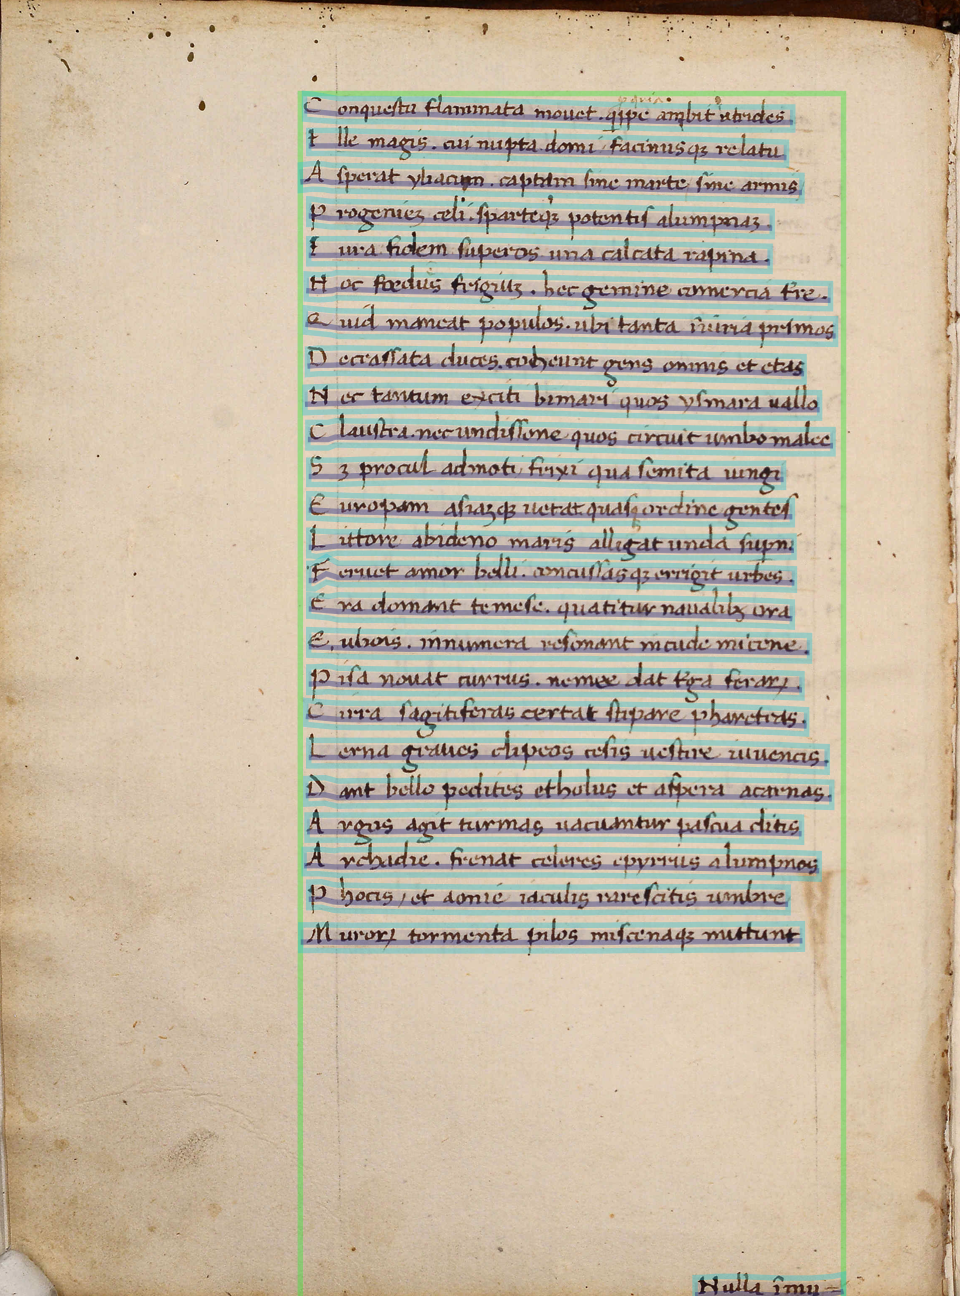 Conquestu flammata mouet. qͥpe ambit utrides
Ille magis. cui nupta domi facinusqꝫ relatu
Asperat ybacum. captam sine marte sine armis
Progenieꝫ celi. sparteqꝫ potentis alumpnaꝫ.
Iura fidem superos una calcata rapina.
Hoc fœdus frigiuꝫ. hec gemine comercia tr̄e.
Quid maneat populos. ubi tanta iniuria primos
Decrassata duces. coheunt gens omnis et etas
Nec tantum exciti bimari quos ysmara uallo
Claustra. nec undissone quos circuit umbo malee
Sꝫ procul admoti frixi qua semita iungi
Europam asiaꝫqꝫ uetat quasqꝫ ordine gentes
Littore abideno maris alligat unda supn̄i
Feruet amor belli. concussasqꝫ errigit urbes.
Era domant temese. quatitur naualibꝫ ora
Eubois. innumera resonant incude micene.
Pisa nouat currus. nemee dat tr̄ga ferarꝝ.
Cirra sagitiferas certat stipare pharetras.
Lerna graues clipeos cesis uestire iuuencis.
Dant bello pedites etholus et aspera acarnas.
Argos agit turmas uacuantur pascua ditis
Archadie. frenat celeres epyrrus alumpnos
Phocis, et aonie iaculis rarescitis umbre
Murorꝝ tormenta pilos miscenaqꝫ mittunt
Nulla īmu-